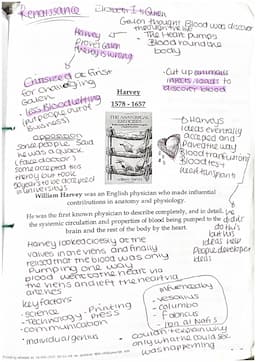 Renaissance
Elizabeth I = Queen
Galen thought Blood was
through the
Harvey
proved Galen
theory is wrong
The Heart pumps
Blood round the
body
Criticised at First
for challenging
Galen
Less Bloodletting
(put people out of
business)
Cut up
to
discover blood
Harvey
1578 - 1657
THE ANATOMICAL
EXERCISES
opposition
some people said
he was a quack
(fake doctor)
some accepted his
theory but took
years to be accepted
in universitys
Harveys
ideas eventually
accepted and
Paved the way
Blood tranfusions
Blood test
and transplant
William Harvey was an English physician who made influential
contributions in anatomy and physiology.
He was the first known physician to describe completely, and in detail,
the systemic circulation and properties of blood being pumped to the
brain and the rest of the body by the heart.
he didn't
do this
but his
ideas help
People developed
ideas
Harvey looked closely at the
valves in the viens and finally
realised that the blood was only
Pumping one way
Blood went to the heart via
the viens and left the heart via
arteries
key factors
- science
- Technology - Printing
press
- communication
- individual genius
influenced by
- vesalius
- columbo
-
- couldn't explain why
only what he could see
was happening